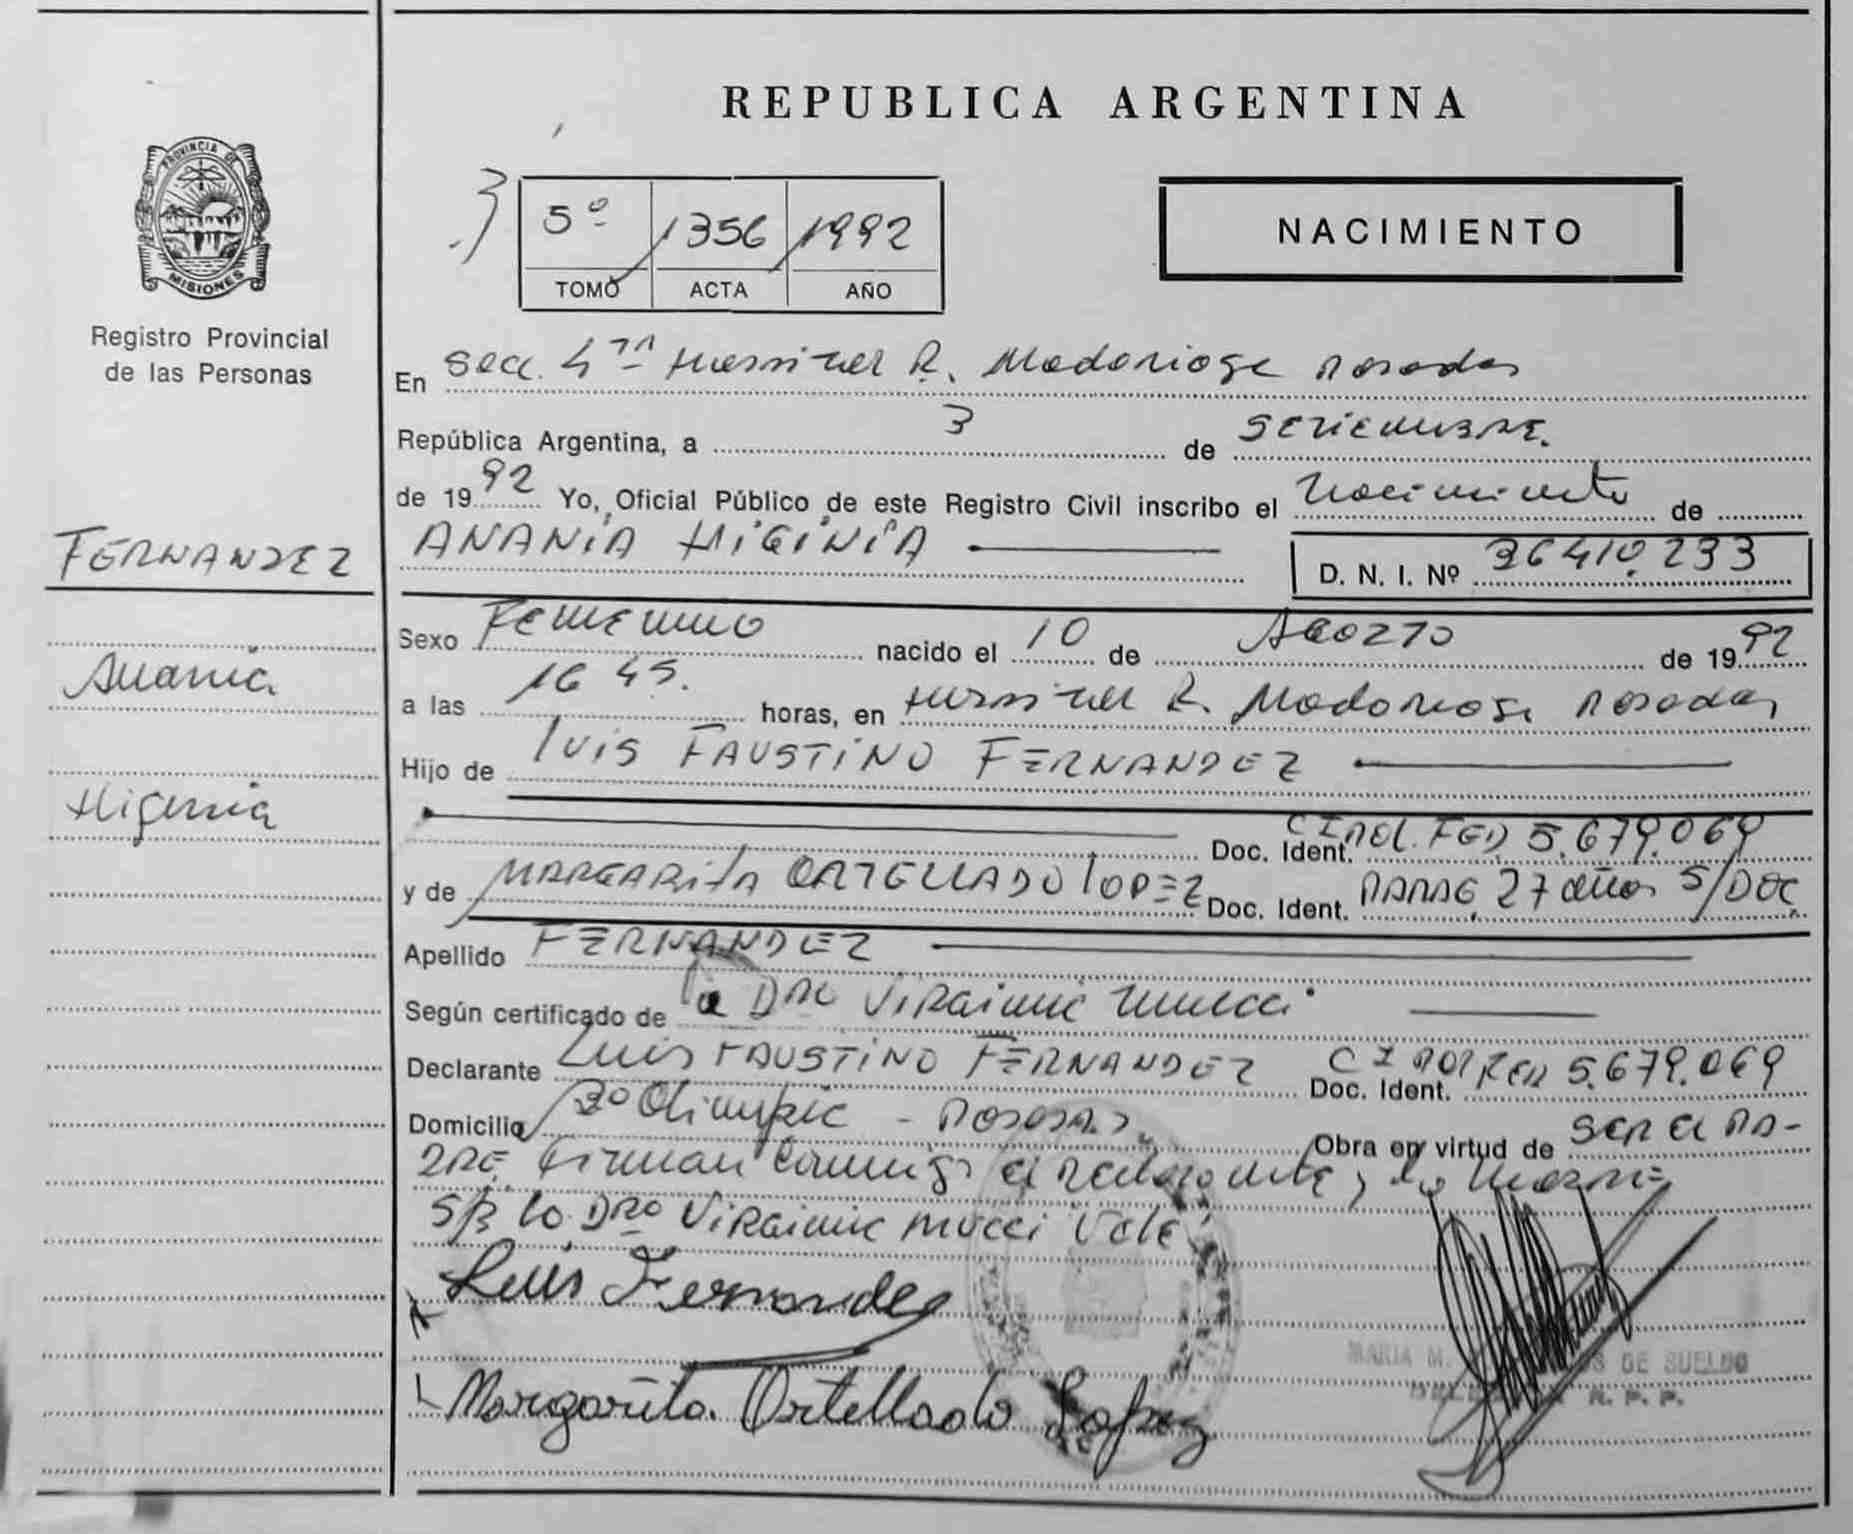 REPUBLICA ARGENTINA
PROVINCIA DE
MISIONES
Registro Provincial
de las Personas
5º 1356 1992
TOMO ACTA AÑO
NACIMIENTO
En Secc. 4ta Hospital R. Madariaga Posadas
República Argentina, a 3 de SETIEMBRE.
de 1992 Yo, Oficial Público de este Registro Civil inscribo el Nacimiento de
FERNANDEZ
ANANIA HIGINIA
D. N. I. Nº 36410.233
Sexo FEMENINO nacido el 10 de AGOSTO de 1992
Anania
a las 16 45. horas, en Hospital R. Madariaga Posadas
Hijo de LUIS FAUSTINO FERNANDEZ
Higinia
Doc. Ident. CI POL. FED 5.679.069
y de MARGARITA ORTELLADO LOPEZ Doc. Ident. PARAG. 27 años S/DOC.
Apellido FERNANDEZ
Según certificado de la DRA VIRGINIA Mucci
Declarante Luis FAUSTINO FERNANDEZ Doc. Ident. CI POL FED 5.679.069
Domicilio Bº Olimpic - POSADAS Obra en virtud de SER EL PA-
DRE Firman Conmigo el declarante y la Madre
S/B la DRA Virginia Mucci Vale
Luis Fernandez
MARIA M. DE SUELDO
R. P. P.
Margarita Ortellado Lopez